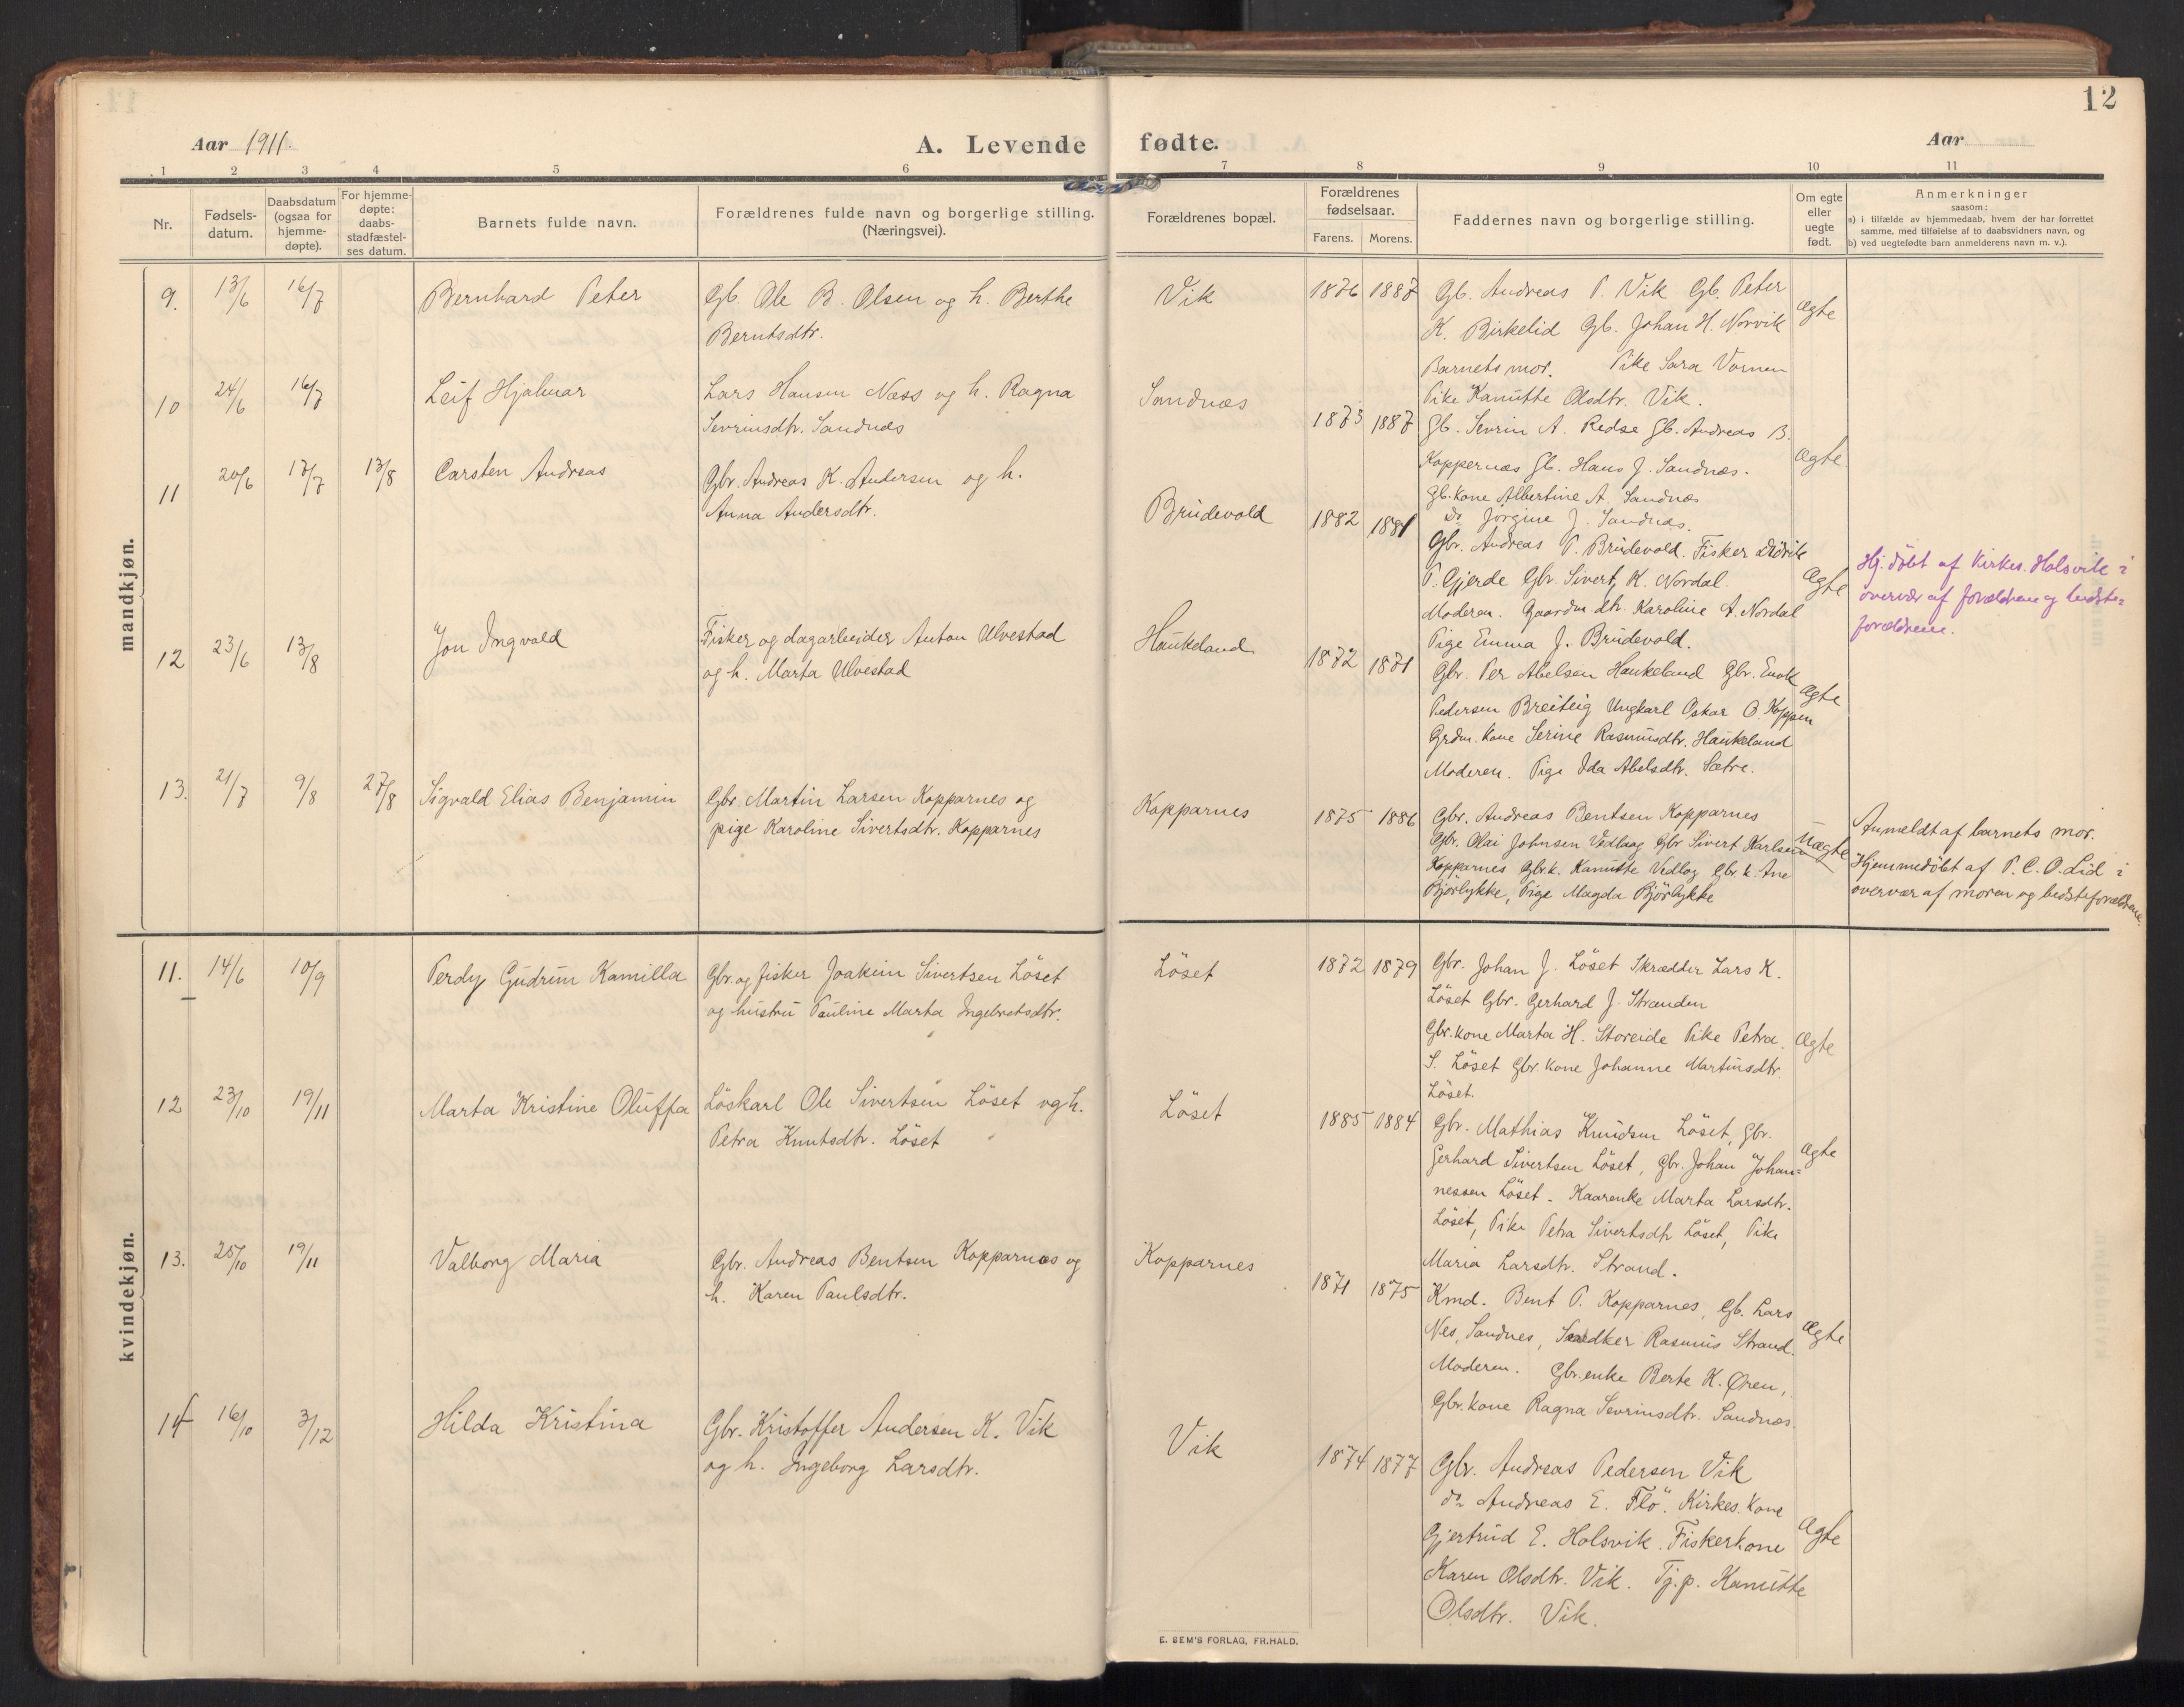 12
Aar 1911.
A. Levende fødte.
Aar
1 2 3 4 5 6 7 8 9 10 11
Nr.
Fødsels-
datum.
Daabsdatum
(ogsaa for
hjemme-
døpte).
For hjemme-
døpte:
daabs-
stadfæstel-
ses datum.
Barnets fulde navn.
Forældrenes fulde navn og borgerlige stilling.
(Næringsvei).
Forældrenes bopæl.
Forældrenes
fødselsaar.
Farens. Morens.
Faddernes navn og borgerlige stilling.
Om egte
eller
uegte
født.
Anmerkninger
saasom:
a) i tilfælde av hjemmedaab, hvem der har forrettet
samme, med tilføielse af to daabsvidners navn, og
b) ved uegtefødte barn anmelderens navn m. v.).
mandkjøn.
9. 13/6 16/7
Bernhard Peter
Gb. Ole B. Olsen og h. Berthe
Berntsdtr.
Vik
1876 1887
Gb. Andreas P. Vik Gb. Peter
K. Birkelid Gb. Johan H. Norvik
Barnets mor. Pike Sara Vornen
Pike Kanutte Olsdtr. Vik.
Ægte
10 24/6 16/7
Leif Hjalmar
Lars Hansen Næss og h. Ragna
Sevrinsdtr. Sandnæs
Sandnæs
1873 1887
Gb. Sevrin A. Redse Gb. Andreas B.
Koppernæs Gb. Hans J. Sandnæs.
Gb. kone Albertine A. Sandnæs
Do Jørgine J. Sandnæs.
Ægte
11 20/6 17/7 13/8
Carsten Andreas
Gbr. Andreas K. Andersen og h.
Anna Andersdtr.
Brudevold
1882 1881
Gbr. Andreas P. Brudevold. Fisker Didrik
P. Gjerde Gbr. Sivert K. Nordal.
Moderen. Gaardm. dtr. Karoline A. Nordal
Pige Emma J. Brudevold.
Ægte
Hj. döbt af Kirkes. Holsvik i
overvær af forældrene og bedste-
forældrene.
12 23/6 13/8
Jon Ingvald
Fisker og dagarbeider Anton Ulvestad
og h. Marta Ulvestad
Haukeland
1872 1871
Gbr. Per Abelsen Haukeland Gbr. Enok
Pedersen Breiteig Ungkarl Oskar O. Koppen
Grdm. kone Serine Rasmusdtr. Haukeland
Moderen. Pige Ida Abelsdtr. Sætre.
Ægte
13. 21/7 9/8 27/8
Sigvald Elias Benjamin
Gbr. Martin Larsen Kopparnes og
pige Karoline Sivertsdtr. Kopparnes
Kopparnes
1875 1886
Gbr. Andreas Bentsen Kopparnes
Gbr. Olai Johnsen Vedlaag Gbr Sivert Karlsen
Kopparnes Gbr.k. Kanutte Vedlog Gbr. k. Ane
Björlykke, Pige Magda Björlykke
Uægte
Anmeldt af barnets mor.
Hjemmedöbt af P. C. O. Lid i
overvær af moren og bedsteforældrene.
kvindekjøn.
11. 14/6 10/9
Perdy Gudrun Kamilla
Gbr. og fisker Joakim Sivertsen Löset
og hustru Pauline Marta Ingebretsdtr.
Löset
1872 1879
Gbr. Johan J. Löset Skrædder Lars K.
Löset Gbr. Gerhard J. Stranden
Gbr. kone Marta H. Storeide Pike Petra
S. Löset Gbr. kone Johanne Martinsdtr.
Löset.
Ægte
12 23/10 19/11
Marta Kristine Oluffa
Löskarl Ole Sivertsen Löset og h.
Petra Knutsdtr. Löset
Löset
1885 1884
Gbr. Mathias Knudsen Löset, Gbr.
Gerhard Sivertsen Löset, Gbr. Johan Johan=
nessen Löset. Kaarenke Marta Larsdtr.
Löset, Pike Petra Sivertsdtr Löset, Pike
Maria Larsdtr. Strand.
Ægte
13. 25/10 19/11
Valborg Maria
Gbr. Andreas Bentsen Kopparnæs og
h. Karen Paulsdtr.
Kopparnes
1871 1875
Kmd. Bent P. Kopparnes, Gb. Lars
Nes, Sandnes, Snedker Rasmus Strand.
Moderen. Gbr. enke Berte K. Øren,
Gbr. kone Ragna Sevrinsdtr. Sandnæs.
Ægte
14 16/10 3/12
Hilda Kristina
Gbr. Kristoffer Andersen K. Vik
og h. Ingeborg Larsdtr.
Vik
1874 1877
Gbr. Andreas Pedersen Vik
do Andreas E. Flö. Kirkes. kone
Gjertrud E. Holsvik. Fiskerkone
Karen Olsdtr. Vik. Tj.p. Kanutte
Olsdtr. Vik.
Ægte
E. SEM'S FORLAG, FR.HALD.